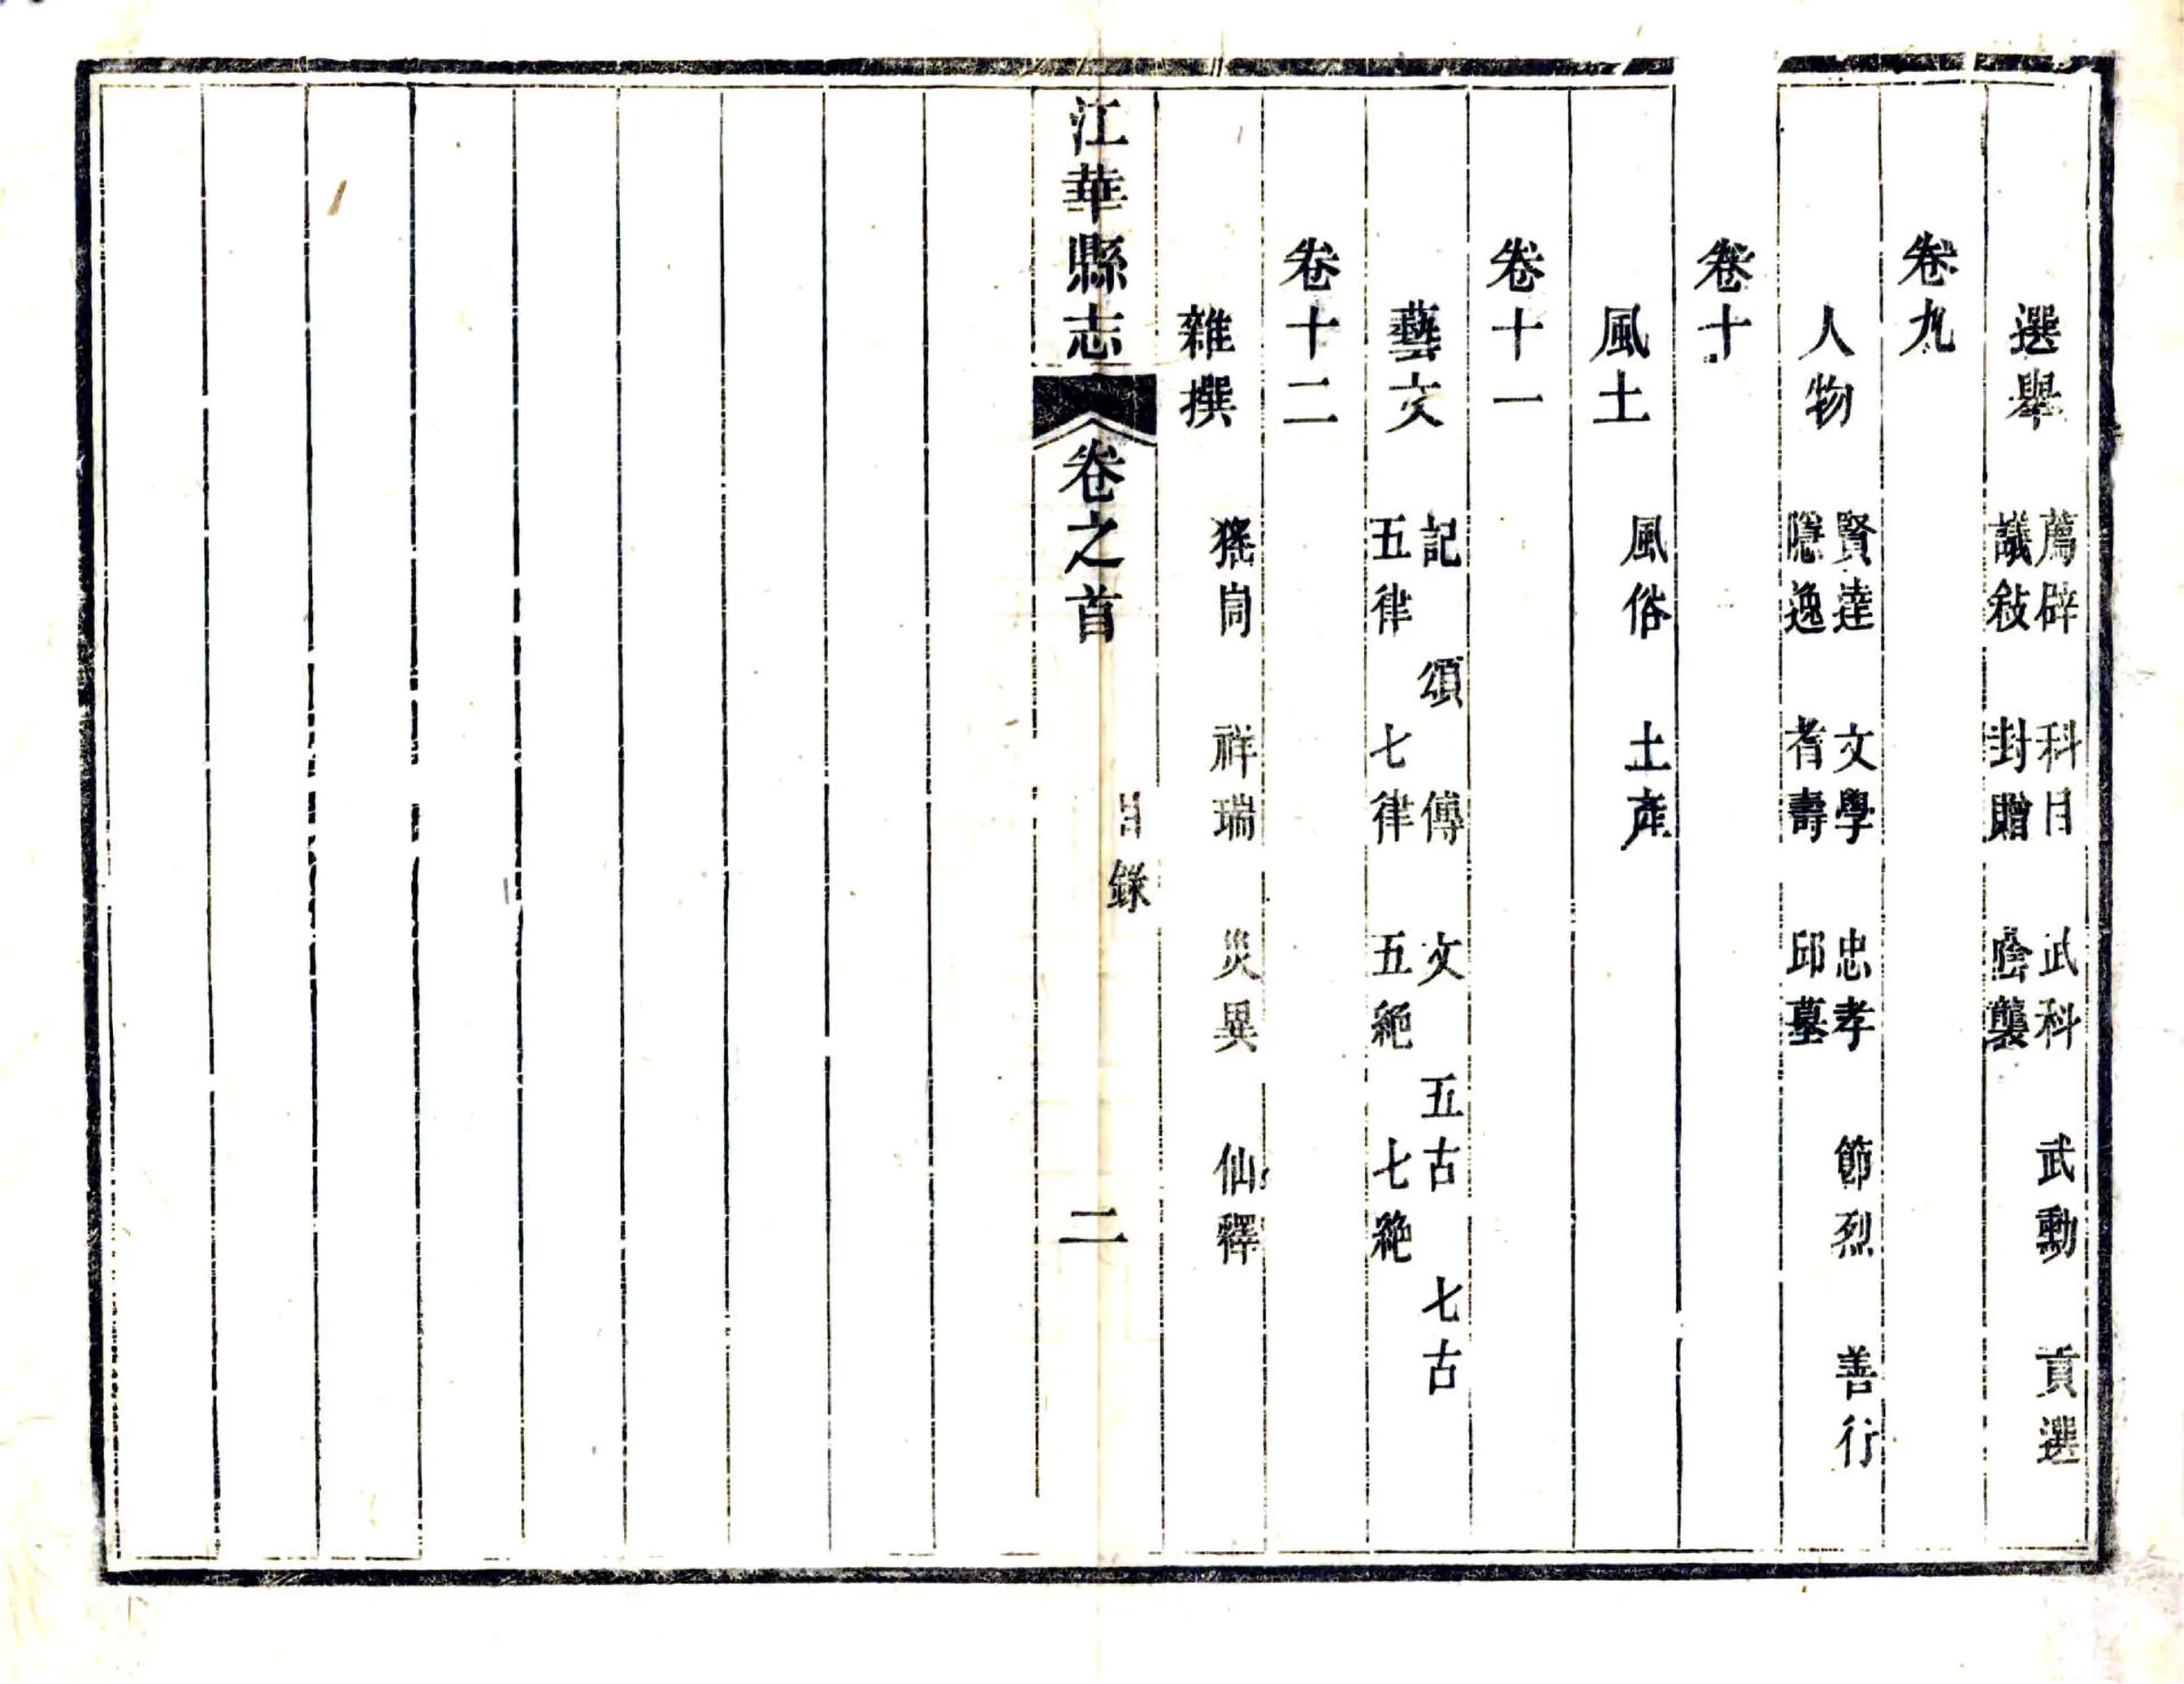 選舉 薦辟 科目 武科 武勳 貢選
議敍 封贈 廕襲
卷九
人物 賢達 文學 忠孝 節烈 善行
隱逸 耆壽 邱墓
卷十
風土 風俗 土產
卷十一
藝文 記 頌 傳 文 五古 七古
五律 七律 五絕 七絕
卷十二
雜撰 猺峝 祥瑞 災異 仙釋
江華縣志 卷之首 目錄 二